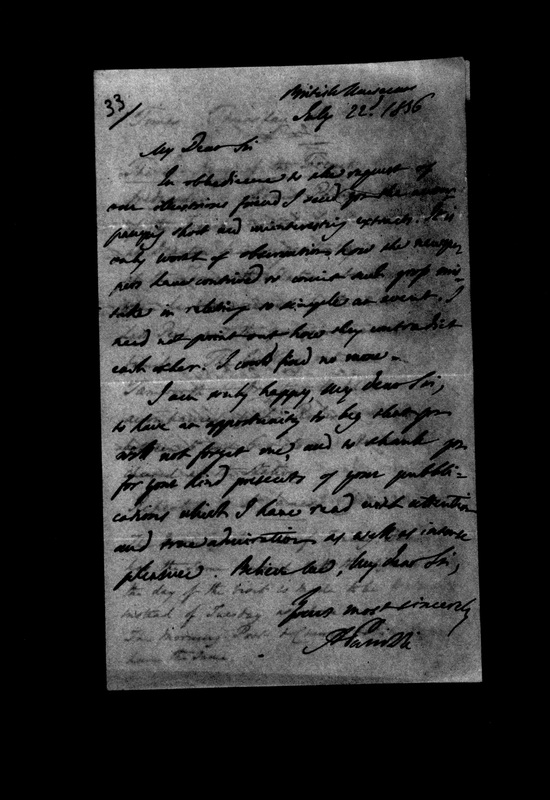 33/
British Museum
July 22d 1836
My Dear Sir
In obedience to the request of
our illustrious friend I send you the accom-
panying short and uninteresting extracts. It is
only worth of observation how the newspa-
pers have contrived to commit such gross mis-
take in relating so simple an event. I
need not point out how they contradict
each other. I could find no more.
I am truly happy, My dear Sir,
to have an opportunity to beg that you
will not forget me, and to thank you
for your kind presents of your pubbli-
cations which I have read with attention
and true admiration as well as intense
pleasure. Believe me, My dear Sir,
Yours most sincerely
APanizzi
the day of the
instead of Tuesday
The Morning Post &
have the same